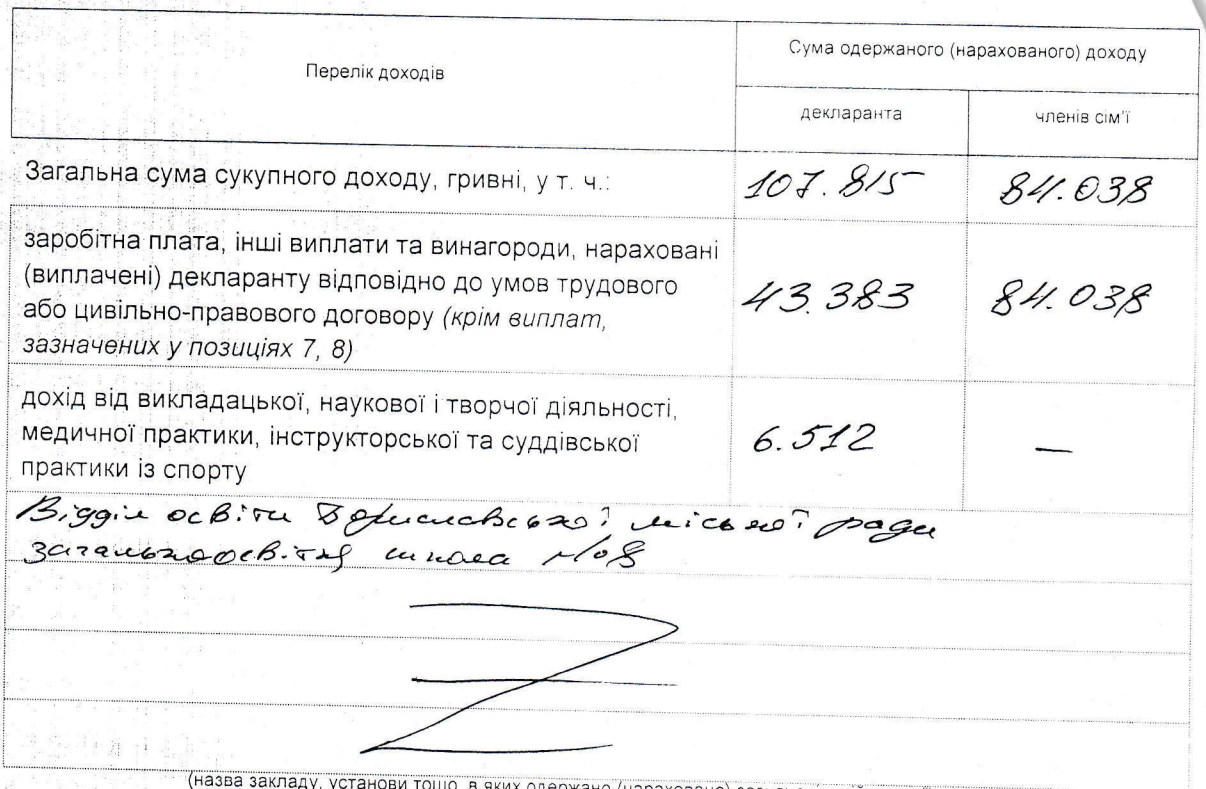 Перелік доходів
Сума одержаного (нарахованого) доходу
декларанта
членів сім'ї
Загальна сума сукупного доходу, гривні, у т. ч.:
107.815
84.038
заробітна плата, інші виплати та винагороди, нараховані
(виплачені) декларанту відповідно до умов трудового
або цивільно-правового договору (крім виплат,
зазначених у позиціях 7, 8)
43.383
84.038
дохід від викладацької, наукової і творчої діяльності,
медичної практики, інструкторської та суддівської
практики із спорту
6.512
—
Відділ освіти Бориславської міської ради
загальноосвітня школа №8
(назва закладу, установи тощо, в яких одержано (нараховано)